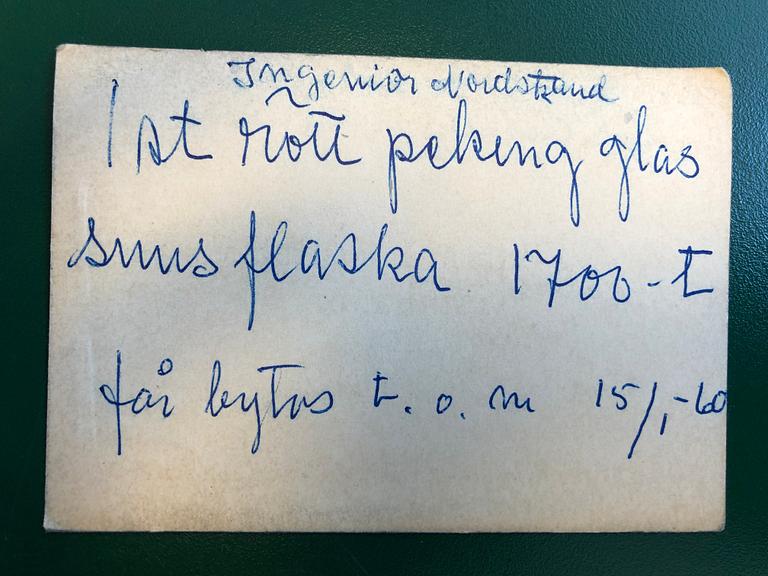 Ingeniör Nordstrand
1 st rött peking glas
snusflaska 1700-t
får bytas t.o.m 15/1-60